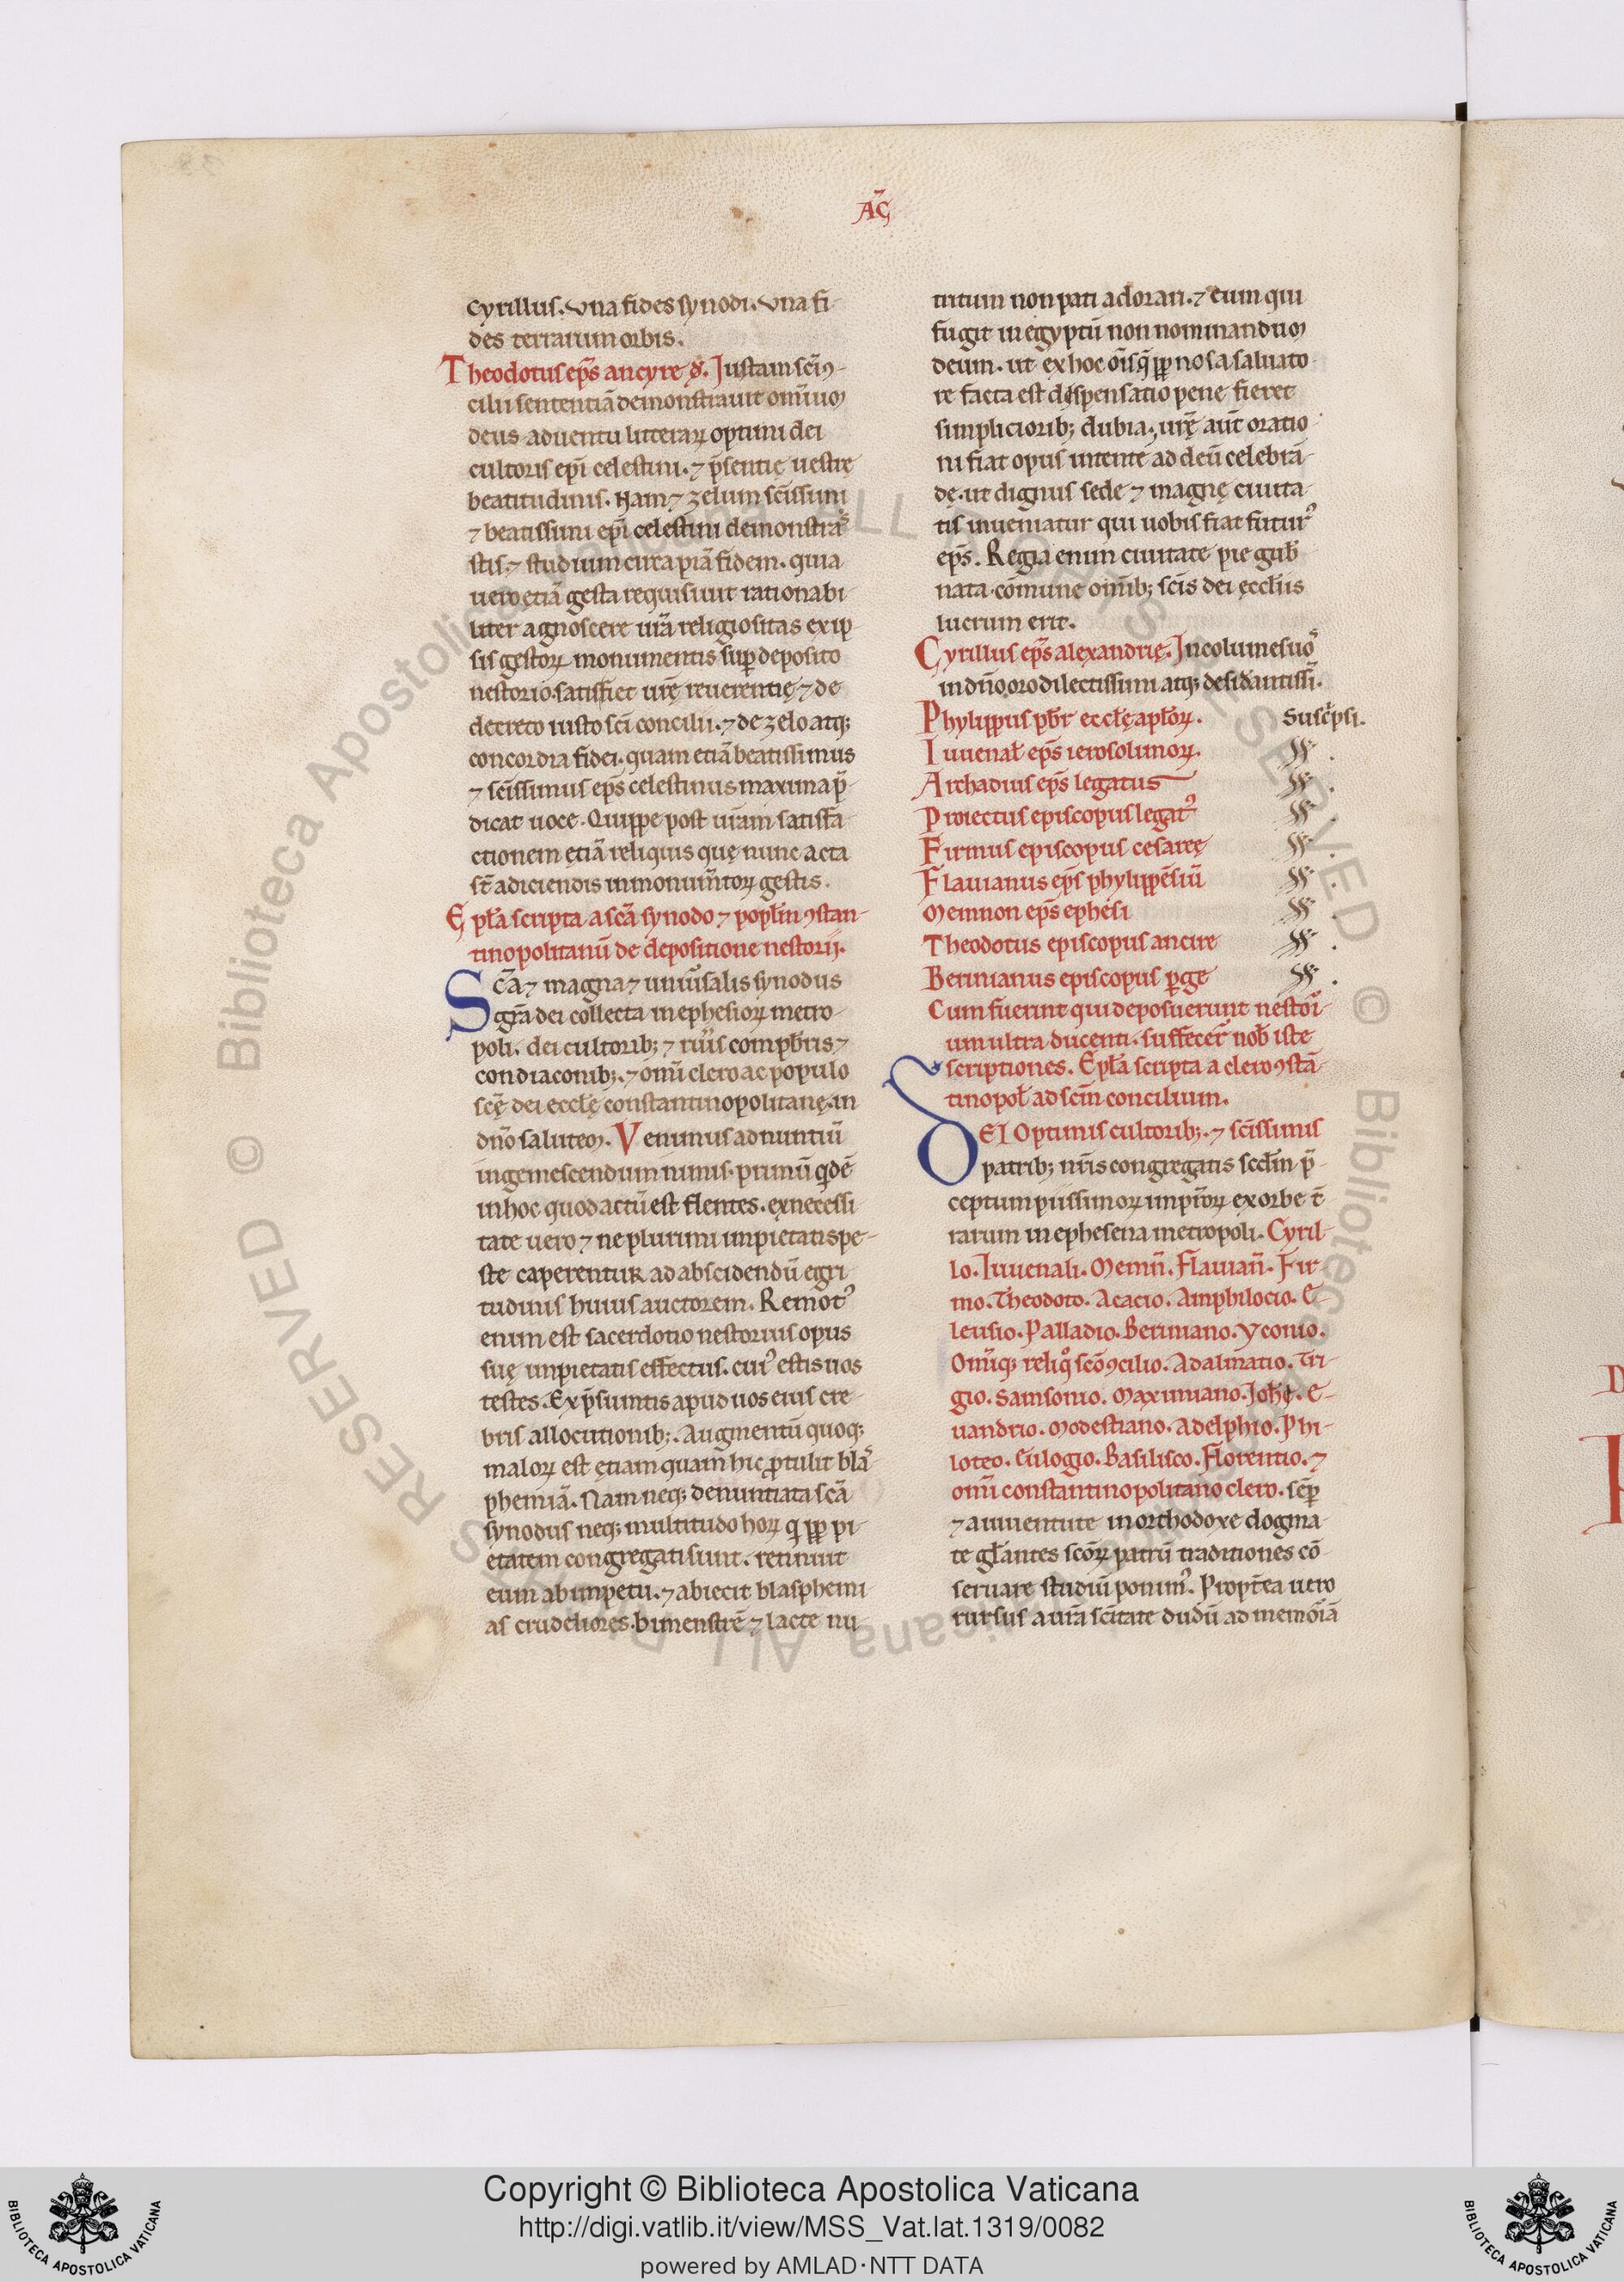 AC̄
cyrillus. vna fides synodi. vna fi-
des terrarum orbis.
Theodotus ep̄s ancyre ꝺ̄. Iustam sc̄i ꝯ-
cilii sententiā demonstrauit om̄iuoꝫ
deus aduentu litteraꝝ optimi dei
cultoris ep̄i celestini. ⁊ p̄sentię uestrę
beatitudinis. Nam ⁊ zelum sc̄issimi
⁊ beatissimi ep̄i celestini demonstra-
stis. ⁊ studium circa piā fidem. quia
uero etiā gesta requisiuit rationabi
liter agnoscere ur̄a religiositas ex ip
sis gestoꝝ monumentis sup̱ deposito
nestorio. satisfiet ur̄ę reuerentię ⁊ de
decreto iusto sc̄i concilii. ⁊ de zelo atqꝫ
concordia fidei. quam etiā beatissimus
⁊ sc̄issimus ep̄s celestinus maxima p̄-
dicat uoce. Quippe post ur̄am satisfa
ctionem etiā reliquis quę nunc acta
st̄ adiciendis in monum̄toꝝ gestis.
Epl̄a scripta a sc̄a synodo ⁊ popl̄m ꝯstan-
tinopolitanū de depositione nestorij.
Sc̄a ⁊ magna ⁊ uniūsalis synodus
gr̄a dei collecta in ephesioꝝ metro-
poli. dei cultoribꝫ ⁊ rūis compb̄ris ⁊
condiaconibꝫ. ⁊ om̄i clero ac populo
sc̄ę dei eccl̄ę constantinopolitanę. in
dn̄o saluteꝫ. Venimus ad nuntiū
ingemescendum nimis. primū qdē
in hoc quod actū est flentes. ex necessi
tate uero ⁊ ne plurimi impietatis pe-
ste caperentur ad abscidendū egri
tudinis huius auctorem. Remotꝰ
enim est sacerdotio nestorius opus
suę impietatis effectus. cuiꝰ estis uos
testes. Ex p̄sumtis apud uos eius cre-
bris allocutionibꝫ. Augmentū quoqꝫ
maloꝝ est etiam quam hic ꝓtulit blas
phemiā. Nam neqꝫ denuntiata sc̄a
synodus neqꝫ multitudo hoꝝ q̄ ꝓp̱ pi
etatem congregati sunt. retinuit
eum ab impetu. ⁊ abiecit blasphemi
as crudeliores. bimenstrē ⁊ lacte nu
tritum non pati adorari. ⁊ eum qui
fugit in egyptū non nominanduꝫ
deum. ut ex hoc om̄is q̄ ꝓp̱ nos a saluato
re facta est dispensatio pene fieret
simplicioribꝫ dubia. ur̄ę aūt oratio
ni fiat opus intente ad deū celebrā-
dę. ut dignus sede ⁊ magnę ciuita
tis inueniatur qui uobis fiat futurꝰ
ep̄s. Regia enim ciuitate pie gub̄
nata. cōmune om̄ibꝫ sc̄is dei eccl̄iis
lucrum erit.
Cyrillus ep̄s alexandrię. Incolumes uos
in dn̄o oro dilectissimi atqꝫ desid̄antissi.
Phylippus pb̄r eccl̄ę apl̄oꝝ. Susc̄psi.
Iuuenal̄ ep̄s ierosolimoꝝ. SS.
Archadius ep̄s legatus SS.
Proiectus episcopus legatꝰ SS.
Firmus episcopus cesareę SS.
Flauianus ep̄s phylippēsiū SS.
Memnon ep̄s ephesi SS.
Theodotus episcopus ancire SS.
Berinianus episcopus p̱ge SS.
Cum fuerint qui deposuerunt nestori-
um ultra ducenti. suffecer̄ nob̄ iste
scriptiones. Epl̄a scripta a clero ꝯstā-
tinopol̄ ad sc̄m concilium.
DEI Optimis cultoribꝫ. ⁊ sc̄issimis
patribꝫ nr̄is congregatis scd̄m p̄-
ceptum piissimoꝝ imp̄toꝝ ex orbe t̄
rarum in ephesena metropoli. Cyril-
lo. Iuuenali. Memn̄. Flauian̄. Fir
mo. Theodoto. Acacio. Amphilocio. E-
leusio. Palladio. Beriniano. Yconio.
Om̄iqꝫ reliq̊ sc̄o ꝯcilio. Adalmatio. Tri-
gio. Samsonio. Maximiano. Ioh̄e. E-
uandrio. Modestiano. Adelphio. Phi-
loteo. Eulogio. Basilisco. Florentio. ⁊
om̄i constantinopolitano clero. semp̱
⁊ a iuuentute in orthodoxe dogma
te gl̄antes sc̄oꝝ patrū traditiones cō-
seruare studiū ponimꝰ. Propt̄ea uero
rursus a ur̄a sc̄itate dudū ad memoriā
Copyright © Biblioteca Apostolica Vaticana
http://digi.vatlib.it/view/MSS_Vat.lat.1319/0082
powered by AMLAD·NTT DATA
BIBLIOTECA APOSTOLICA VATICANA
BIBLIOTECA APOSTOLICA VATICANA